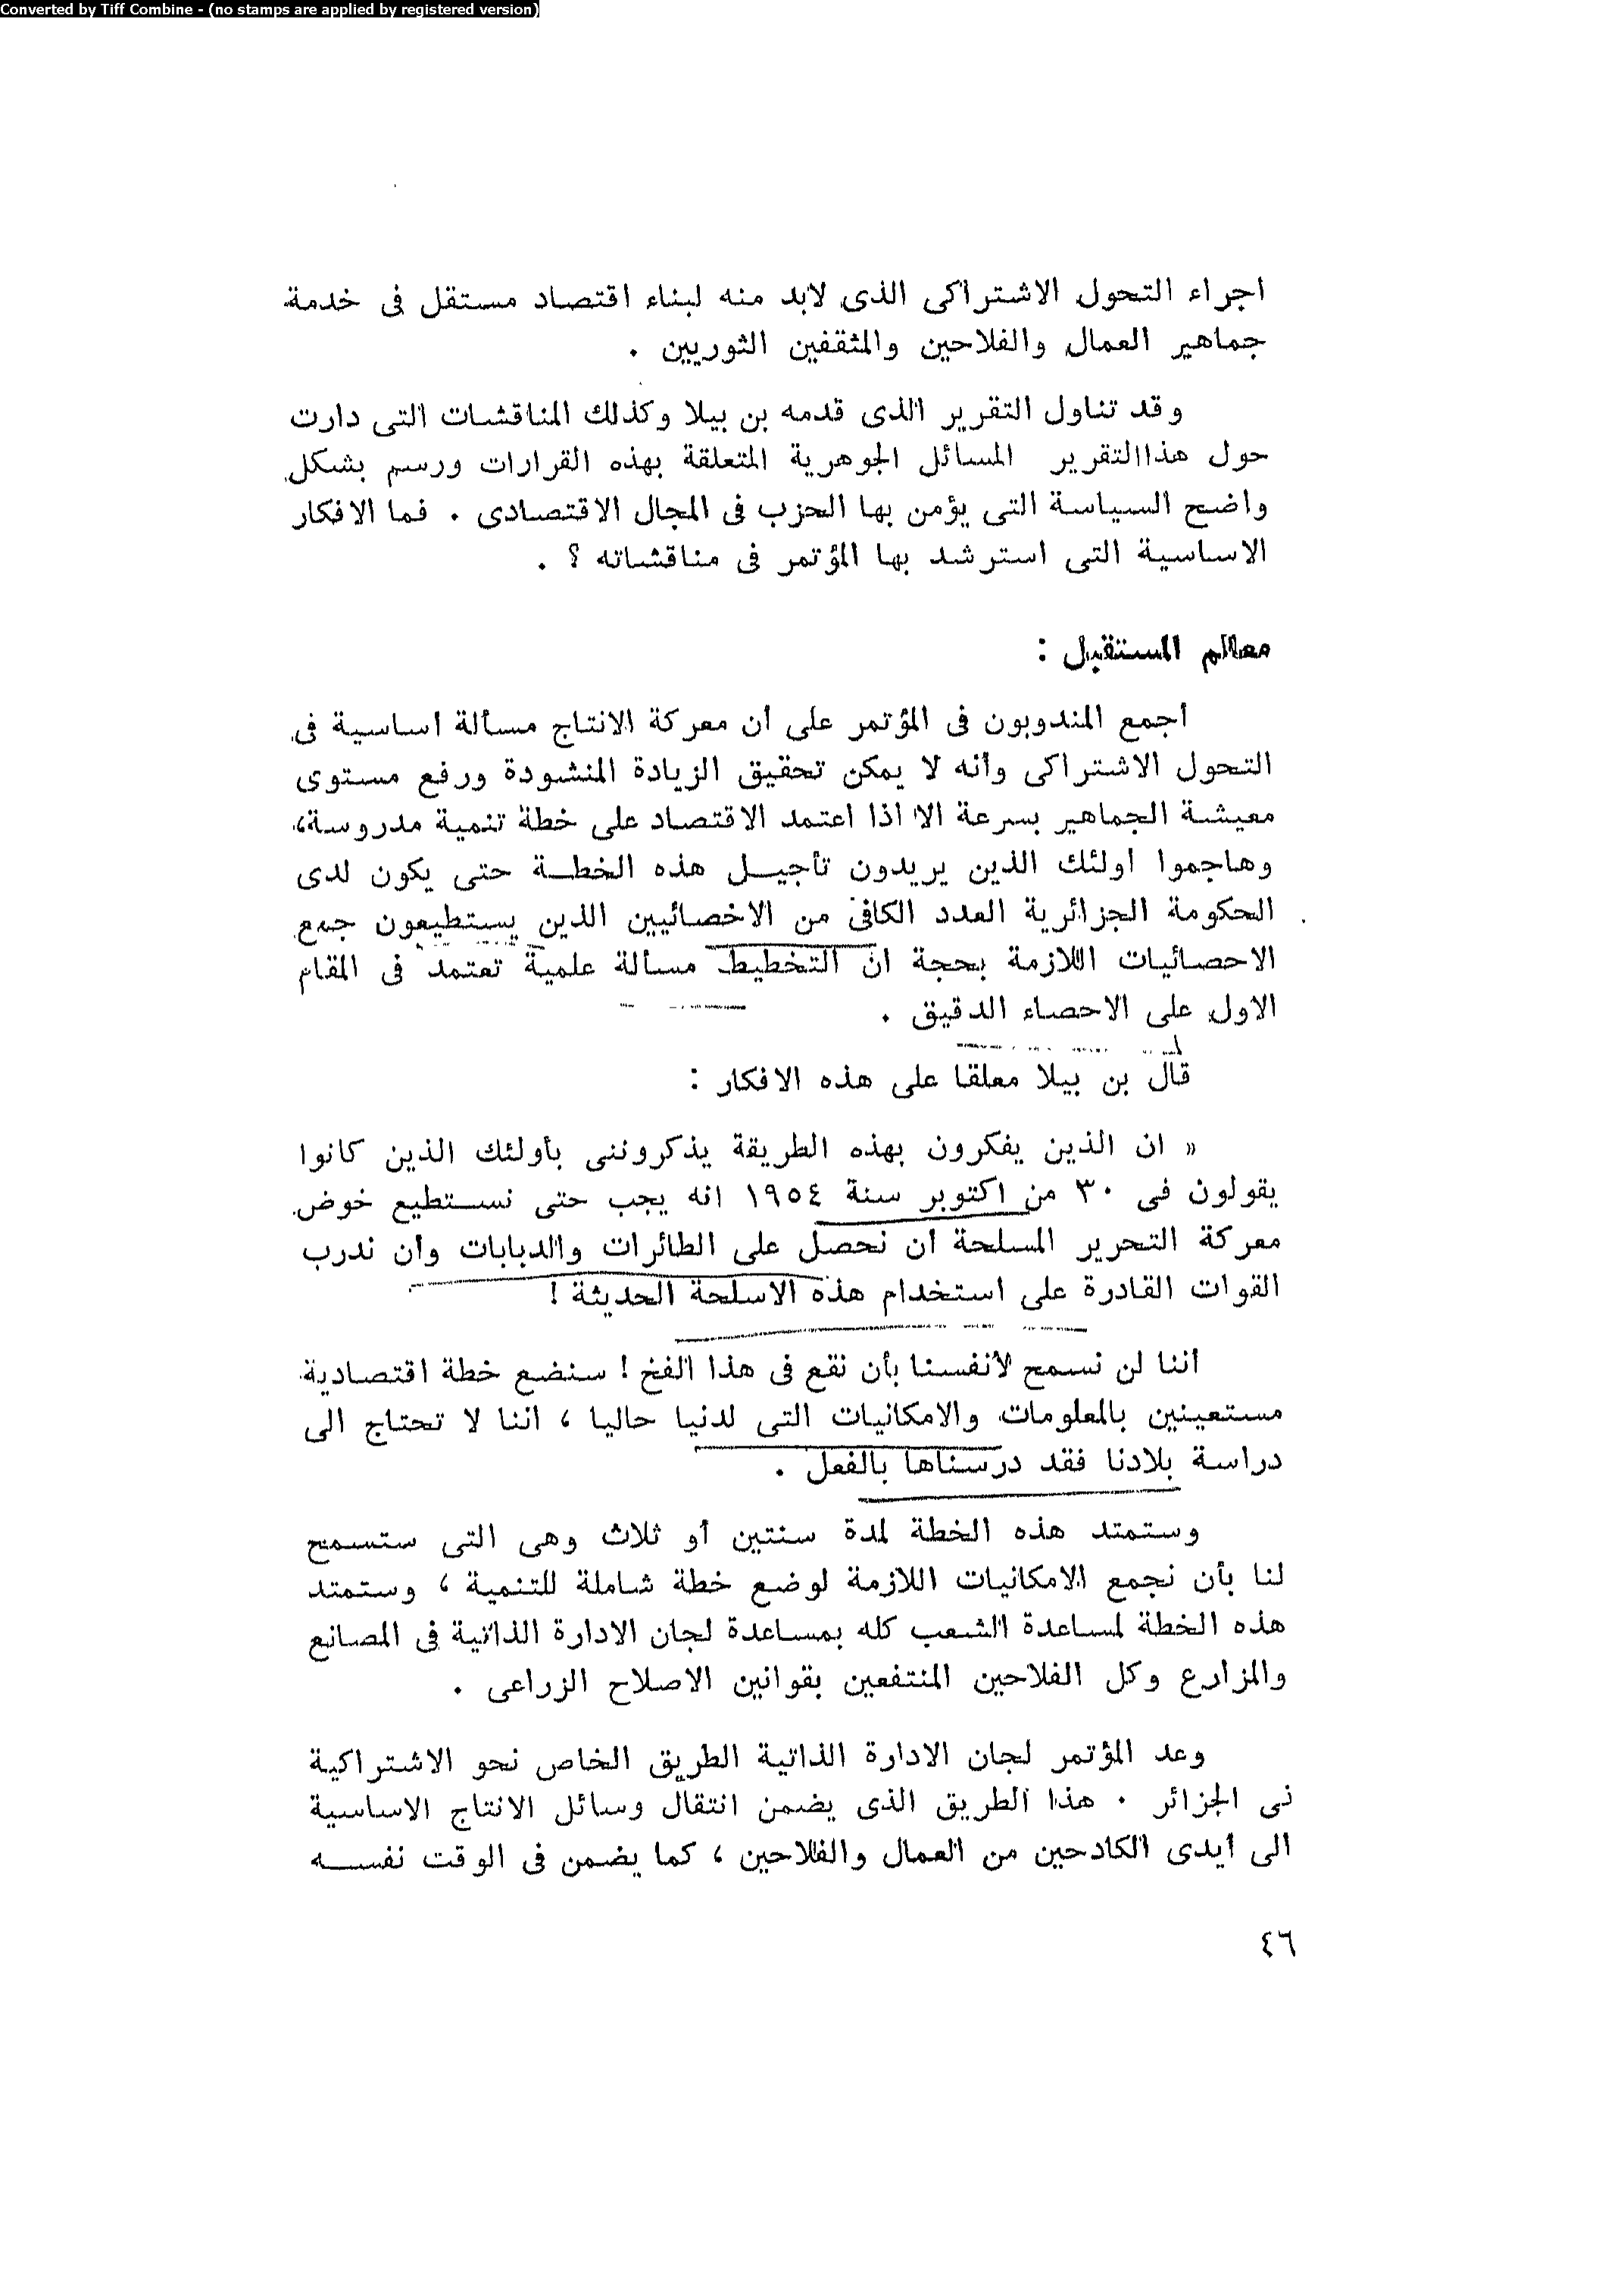 Converted by Tiff Combine - (no stamps are applied by registered version)
اجراء التحول الاشتراكى الذى لابد منه لبناء اقتصاد مستقل فى خدمة
جماهير العمال والفلاحين والمثقفين الثوريين .
وقد تناول التقرير الذى قدمه بن بيلا وكذلك المناقشات التى دارت
حول هذاالتقرير المسائل الجوهرية المتعلقة بهذه القرارات ورسم بشكل
واضح السياسة التى يؤمن بها الحزب فى المجال الاقتصادى . فما الافكار
الاساسية التى استرشد بها المؤتمر فى مناقشاته ؟ .
معالم المستقبل :
أجمع المندوبون فى المؤتمر على أن معركة الانتاج مسألة أساسية فى
التحول الاشتراكى وأنه لا يمكن تحقيق الزيادة المنشودة ورفع مستوى
معيشة الجماهير بسرعة الا اذا اعتمد الاقتصاد على خطة تنمية مدروسة،
وهاجموا اولئك الذين يريدون تأجيل هذه الخطة حتى يكون لدى
الحكومة الجزائرية العدد الكافى من الاخصائيين الذين يستطيعون جمع
الاحصائيات اللازمة بحجة ان التخطيط مسألة علمية تعتمد فى المقام
الاول على الاحصاء الدقيق .
قال بن بيلا معلقا على هذه الافكار :
« ان الذين يفكرون بهذه الطريقة يذكروننى بأولئك الذين كانوا
يقولون فى ٣٠ من اكتوبر سنة ١٩٥٤ انه يجب حتى نستطيع خوض
معركة التحرير المسلحة أن نحصل على الطائرات والدبابات وأن ندرب
القوات القادرة على استخدام هذه الاسلحة الحديثة !
أننا لن نسمح لأنفسنا بأن نقع فى هذا الفخ ! سنضع خطة اقتصادية
مستعينين بالمعلومات والامكانيات التى لدنيا حاليا ، اننا لا تحتاج الى
دراسة بلادنا فقد درسناها بالفعل .
وستمتد هذه الخطة لمدة سنتين أو ثلاث وهى التى ستسمح
لنا بأن نجمع الامكانيات اللازمة لوضع خطة شاملة للتنمية ، وستمتد
هذه الخطة لمساعدة الشعب كله بمساعدة لجان الادارة الذاتية فى المصانع
والمزارع وكل الفلاحين المنتفعين بقوانين الاصلاح الزراعى .
وعد المؤتمر لجان الادارة الذاتية الطريق الخاص نحو الاشتراكية
فى الجزائر . هذا الطريق الذى يضمن انتقال وسائل الانتاج الاساسية
الى أيدى الكادحين من العمال والفلاحين ، كما يضمن فى الوقت نفسه
٤٦